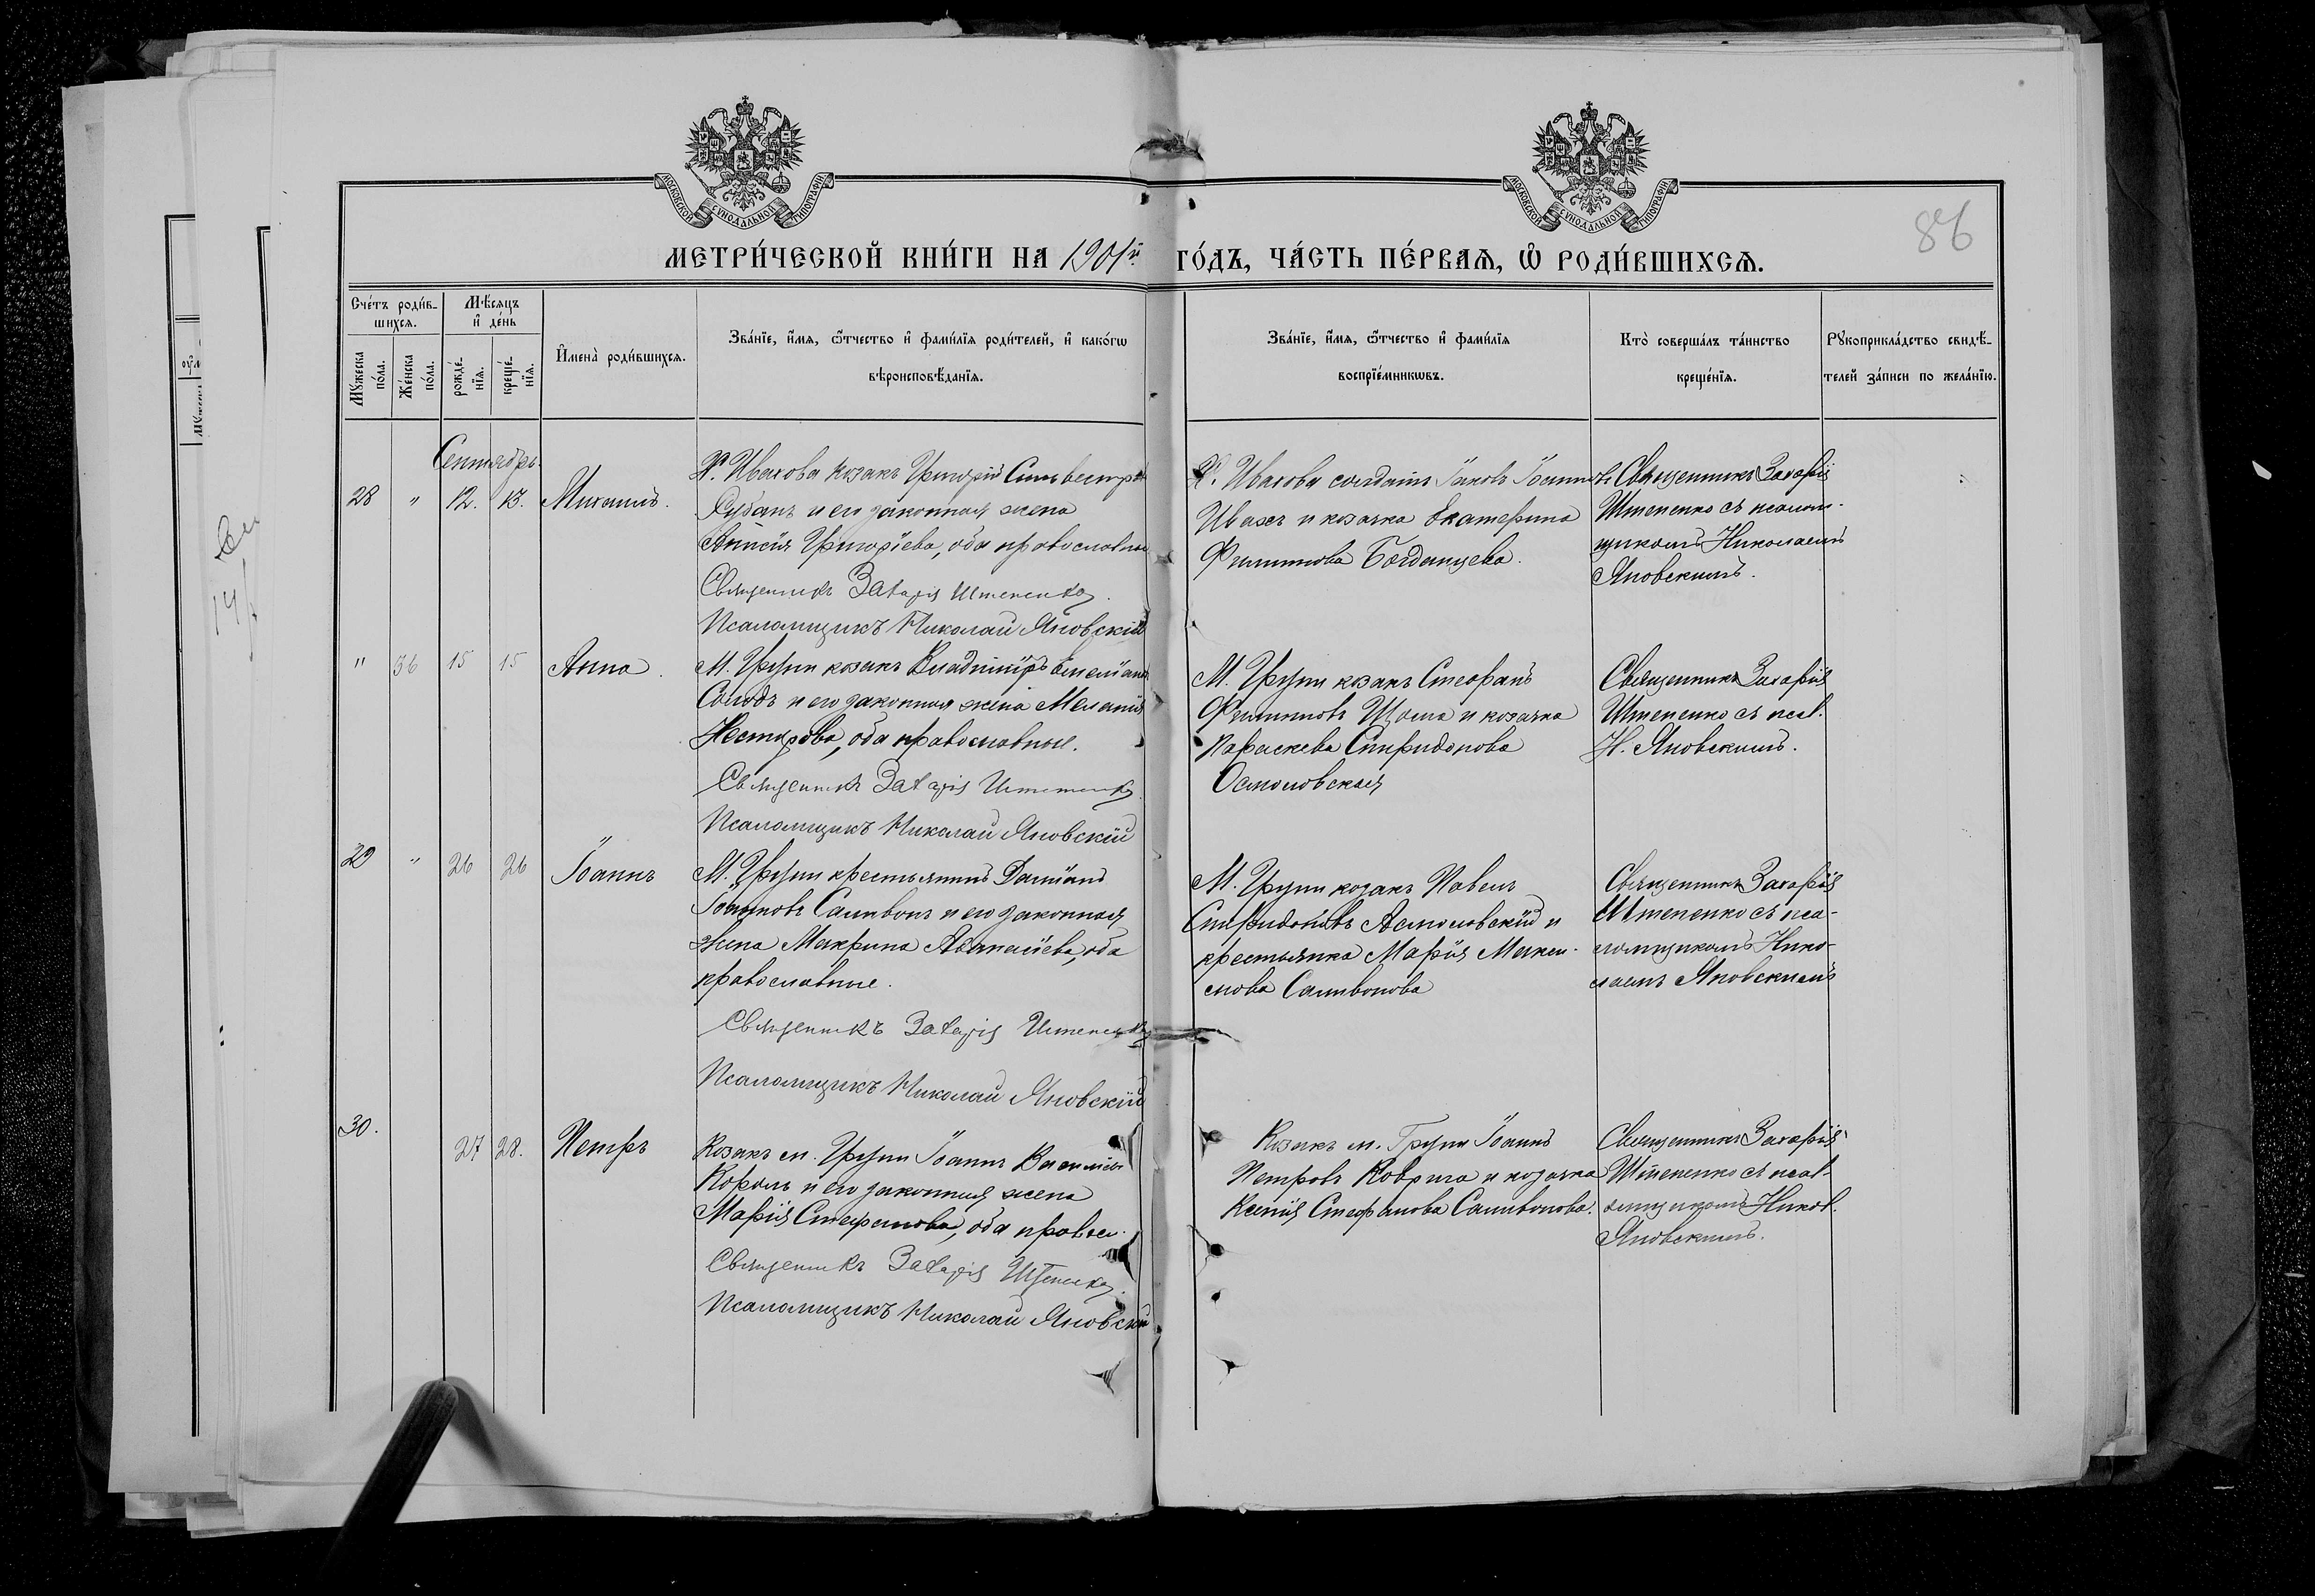 МОСКОВСКОЙ СѴНОДАЛЬНОЙ ТИПОГРАФІИ
МОСКОВСКОЙ СѴНОДАЛЬНОЙ ТИПОГРАФІИ
86
МЕТРИ́ЧЕСКОЙ КНИ́ГИ НА 1901й ГО́ДЪ, ЧА́СТЬ ПЕ́РВАѦ, Ѡ РОДИ́ВШИХСѦ.
Сче́тъ роди́в-
шихсѧ.
Мѣ́сѧцъ
и҆ де́нь
Мꙋ́жеска
по́ла.
Же́нска
по́ла.
рожде́-
нїѧ.
креще́-
нїѧ.
И҆мена̀ роди́вшихсѧ.
Зва́нїе, и҆́мѧ, ѻ҆́тчество и҆ фами́лїѧ роди́телей, и҆ како́гѡ
вѣроисповѣ́данїѧ.
Зва́нїе, и҆́мѧ, ѻ҆́тчество и҆ фами́лїѧ
воспрїе́мникѡвъ.
Кто̀ соверша́лъ та́инство
креще́нїѧ.
Рꙋкоприкла́дство свидѣ́-
телей за́писи по жела́нїю.
Сентябрь
28 " 12. 13. Михаилъ.
Х. Ивахова козакъ Григорій Сильвестров
Рубанъ и его законная жена
Григоріева, оба православные
Священникъ Захарія Штепенко.
Псаломщикъ Николай Яновскій
Х. Ивахова солдатъ Іаковъ Іоанновъ
Ивахъ и козачка Екатерина
Филиппова Богданцева.
Священникъ Захарія
Штепенко съ псалом-
щикомъ Николаемъ
Яновскимъ.
" 36 15 15 Анна.
М. Груни козакъ Владиміръ Емеліановъ
Солодъ и его законная жена Меланія
Несторова, оба православные.
Священникъ Захарія Штепенко
Псаломщикъ Николай Яновскій
М. Груни козакъ Стефанъ
Филипповъ и козачка
Параскева Спиридонова
Осмоловская
Священникъ Захарія
Штепенко съ псал.
Н. Яновскимъ.
29 " 26 26 Іоаннъ
М. Груни крестьянинъ Даміанъ
Іоанновъ Саливонъ и его законная
жена Макрина оба
православные.
Священникъ Захарія Штепенко
Псаломщикъ Николай Яновскій
М. Груни козакъ Павелъ
Спиридоновъ Асмоловскій и
крестьянка Марія Макси-
мова Саливонова
Священникъ Захарія
Штепенко съ пса-
ломщикомъ Нико-
лаемъ Яновскимъ
30. 27 28. Петръ
Козакъ м. Груни Іоаннъ Василіевъ
Король и его законная жена
Марія Стефанова, оба правосл.
Священникъ Захарія Штепенко.
Псаломщикъ Николай Яновскій
Козакъ м. Груни Іоаннъ
Петровъ Коврига и козачка
Ксенія Стефанова Саливонова.
Священникъ Захарія
Штепенко съ псал-
омщикомъ Никол.
Яновскимъ.